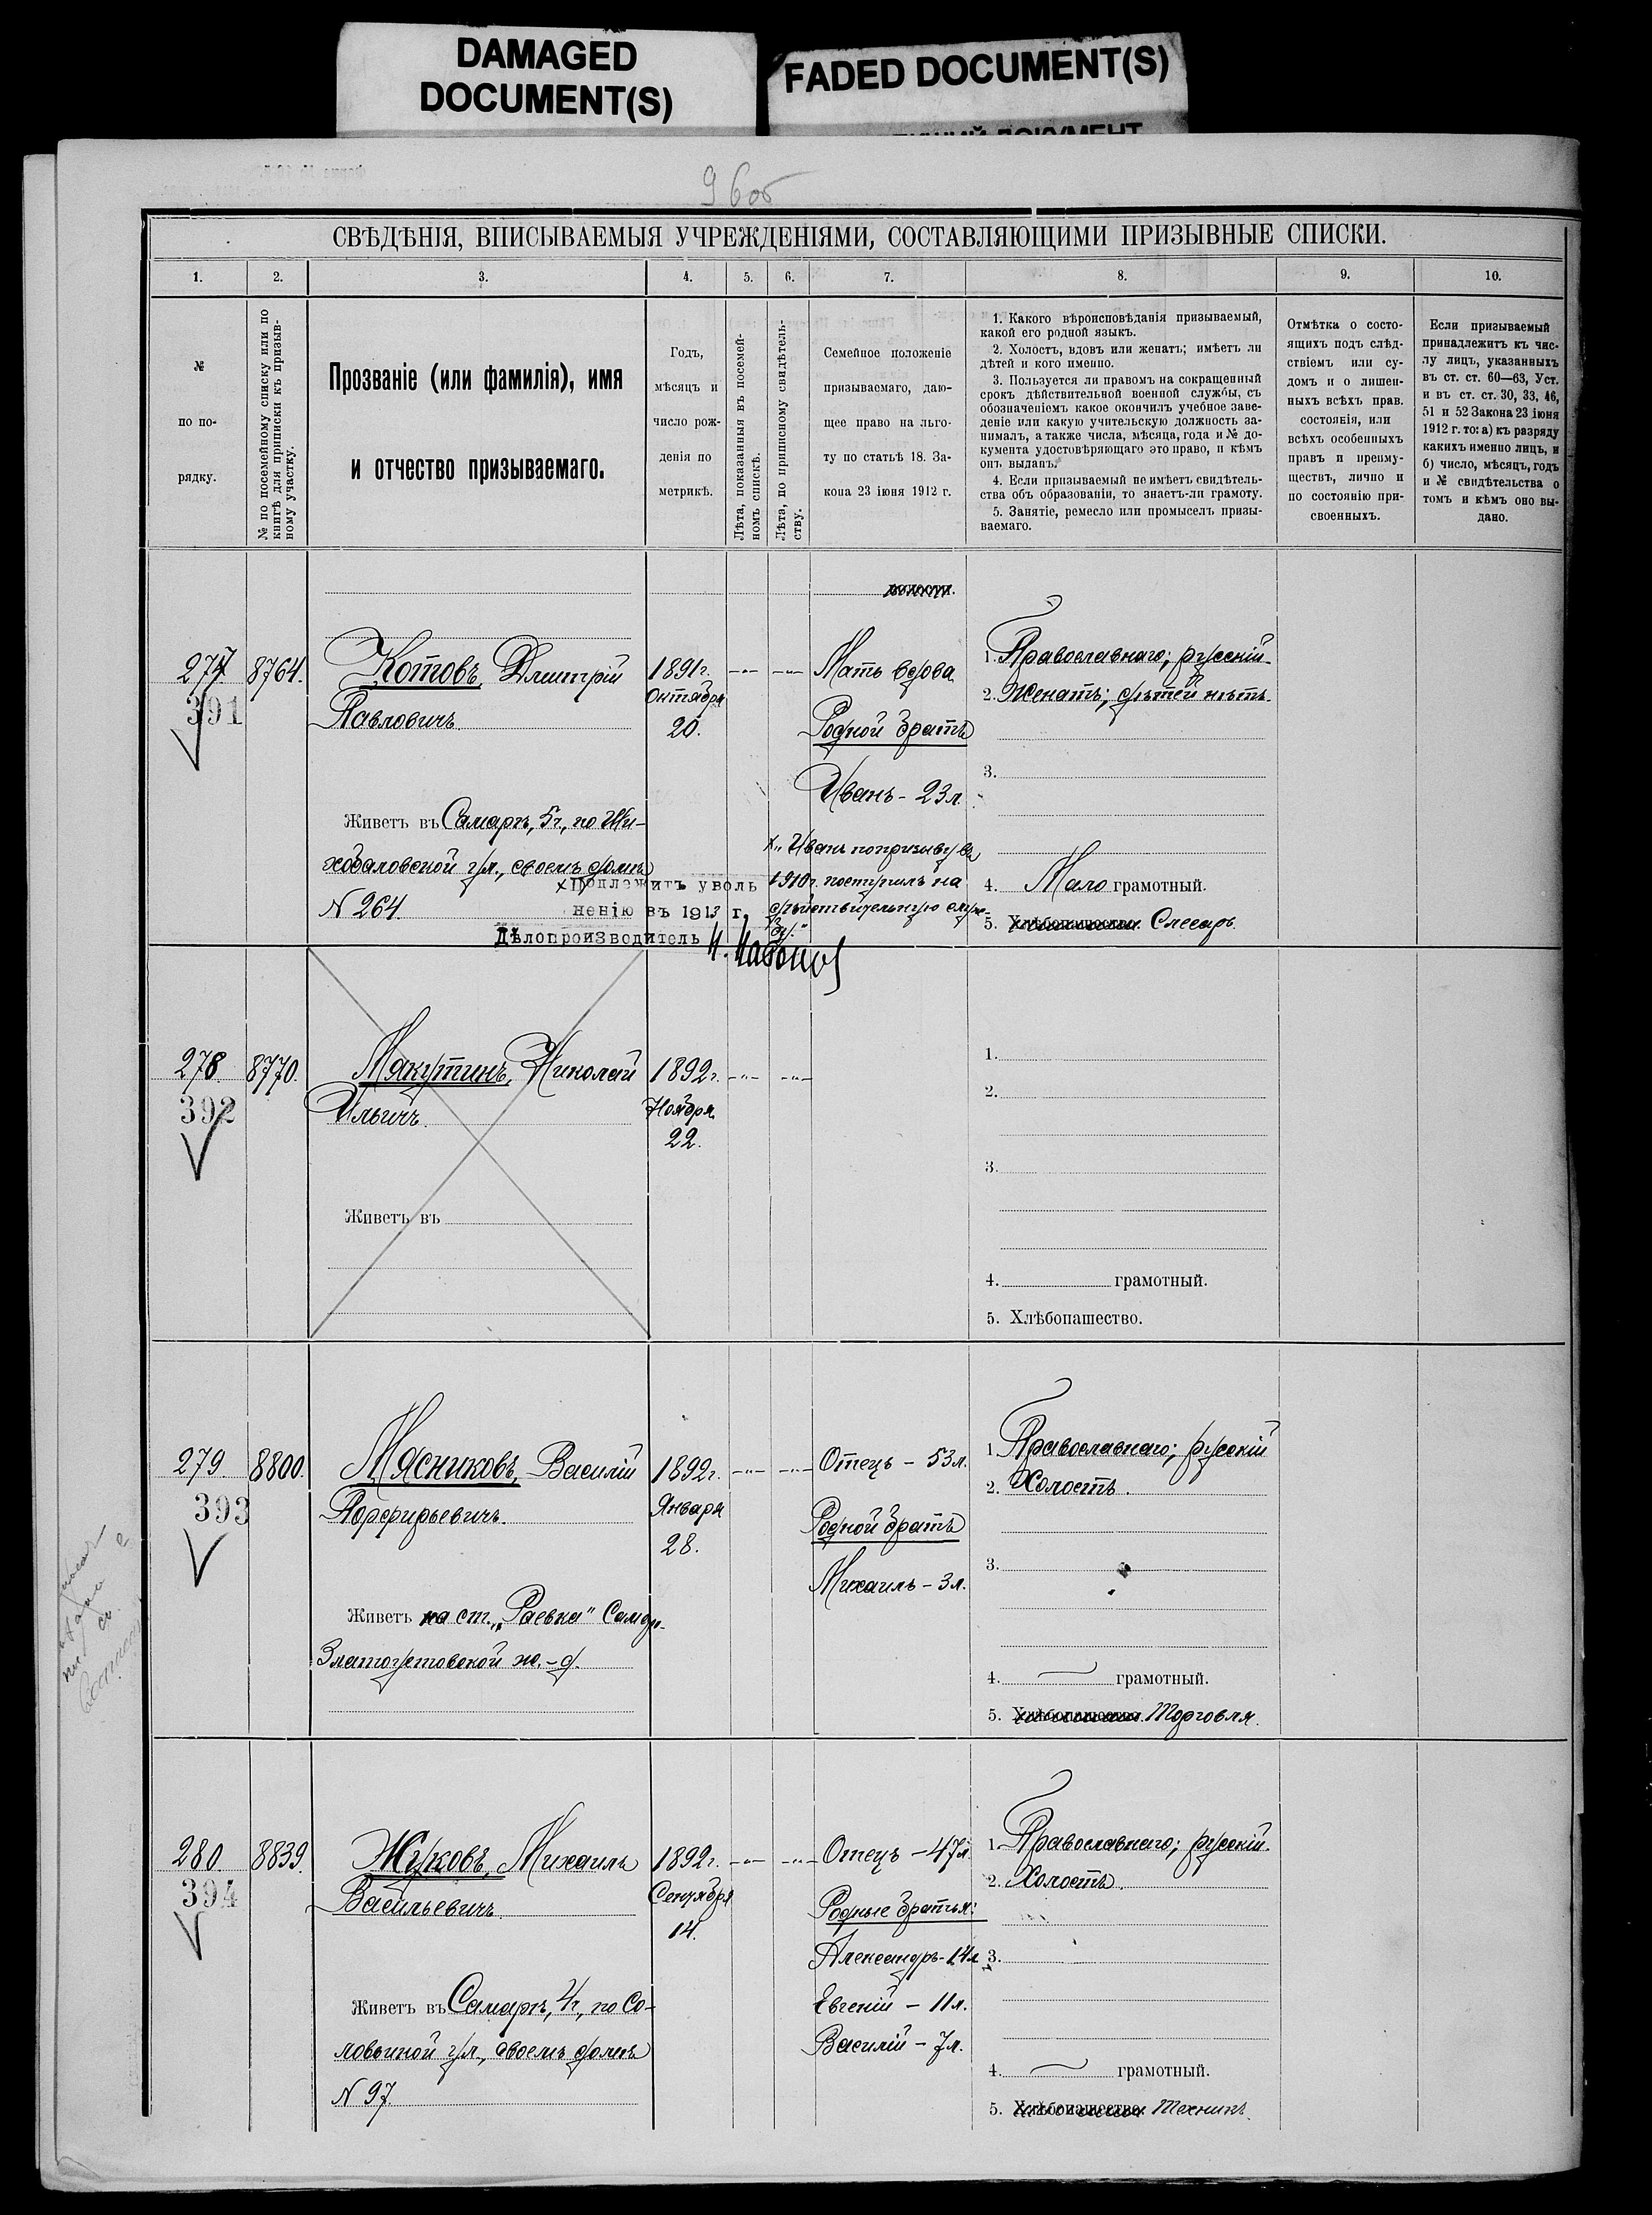 DAMAGED
DOCUMENT(S)
FADED DOCUMENT(S)
96об
СВѢДѢНІЯ, ВПИСЫВАЕМЫЯ УЧРЕЖДЕНІЯМИ, СОСТАВЛЯЮЩИМИ ПРИЗЫВНЫЕ СПИСКИ.
1. 2. 3. 4. 5. 6. 7. 8. 9. 10.
№
по по-
рядку.
№ по посемейному списку или по
книгѣ для приписки къ призыв-
ному участку.
Прозваніе (или фамилія), имя
и отчество призываемаго.
Годъ,
мѣсяцъ и
число рож-
денія по
метрикѣ.
Лѣта, показанныя въ посемей-
номъ спискѣ.
Лѣта, по приписному свидѣтель-
ству.
Семейное положеніе
призываемаго, даю-
щее право на льго-
ту по статьѣ 18. За-
кона 23 іюня 1912 г.
1. Какого вѣроисповѣданія призываемый,
какой его родной языкъ.
2. Холостъ, вдовъ или женатъ; имѣетъ ли
дѣтей и кого именно.
3. Пользуется ли правомъ на сокращенный
срокъ дѣйствительной военной службы, съ
обозначеніемъ какое окончилъ учебное заве-
деніе или какую учительскую должность за-
нималъ, а также числа, мѣсяца, года и № до-
кумента удостовѣряющаго это право, и кѣмъ
онъ выданъ.
4. Если призываемый не имѣетъ свидѣтель-
ства объ образованіи, то знаетъ-ли грамоту.
5. Занятіе, ремесло или промыселъ призы-
ваемаго.
Отмѣтка о состо-
ящихъ подъ слѣд-
ствіемъ или су-
домъ и о лишен-
ныхъ всѣхъ прав.
состоянія, или
всѣхъ особенныхъ
правъ и преиму-
ществъ, лично и
по состоянію при-
своенныхъ.
Если призываемый
принадлежитъ къ чис-
лу лицъ, указанныхъ
въ ст. ст. 60—63, Уст.
и въ ст. ст. 30, 33, 46,
51 и 52 Закона 23 іюня
1912 г. то: а) къ разряду
какихъ именно лицъ, и
б) число, мѣсяцъ, годъ
и № свидѣтельства о
томъ и кѣмъ оно вы-
дано.
277
391
8764.
Котовъ, Дмитрій
Павловичъ.
Живетъ въ Самарѣ, 5ч., по Ши-
хобаловской ул., своемъ домѣ
N 264
1891г.
Октября
20.
Мать вдова
Родной братъ
Иванъ - 23л.
х„ Иванъ попризыву въ
1910г. поступилъ на
дѣйствительную служ-
бу."
х Подлежитъ уволь
ненію въ 1913 г.
Дѣлопроизводитель
1. Православнаго; русскій.
2. Женатъ; дѣтей нѣтъ.
3.
4. Мало грамотный.
5. Хлѣбопашество. Слесарь.
278
392
8770.
Мякутинъ, Николай
Ильичъ.
Живетъ въ
1892г.
Ноября
22.
1.
2.
3.
4. грамотный.
5. Хлѣбопашество.
279
393
8800.
Мясниковъ, Василій
Порфирьевичъ.
Живетъ на ст. „Раевка" Самаро-
Златоустовской ж.-д.
1892г.
Января
28.
Отецъ - 53л.
Родной братъ
Михаилъ - 3л.
1. Православнаго; русскій
2. Холостъ.
3.
4. грамотный.
5. Хлѣбопашество. Торговля.
280
394
8839.
Жуковъ, Михаилъ
Васильевичъ.
Живетъ въ Самарѣ, 4ч., по Со-
ловьиной ул., своемъ домѣ
N 97.
1892г.
Сентября
14.
Отецъ - 47л.
Родные братья:
Александръ - 14л.
Евгеній - 11л.
Василій - 7л.
1. Православнаго; русскій.
2. Холостъ.
3.
4. грамотный.
5. Хлѣбопашество. Техникъ.